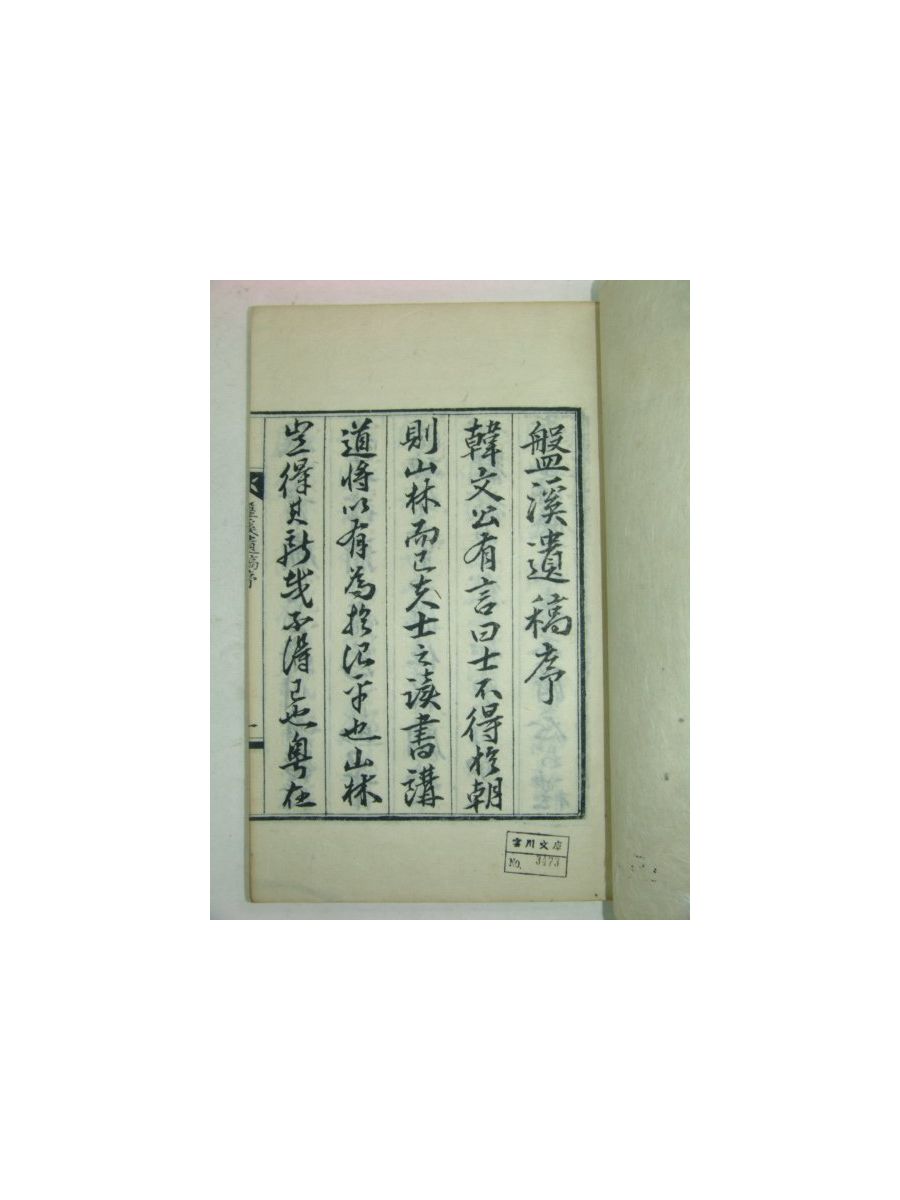 盤溪遺稿序
韓文公有言曰士不得於朝
則山林而已夫士之讀書講
道將以有為於治平也山林
豈得其所哉不得已也粤在
盤溪遺稿序
一
雲川文庫
No. 3473